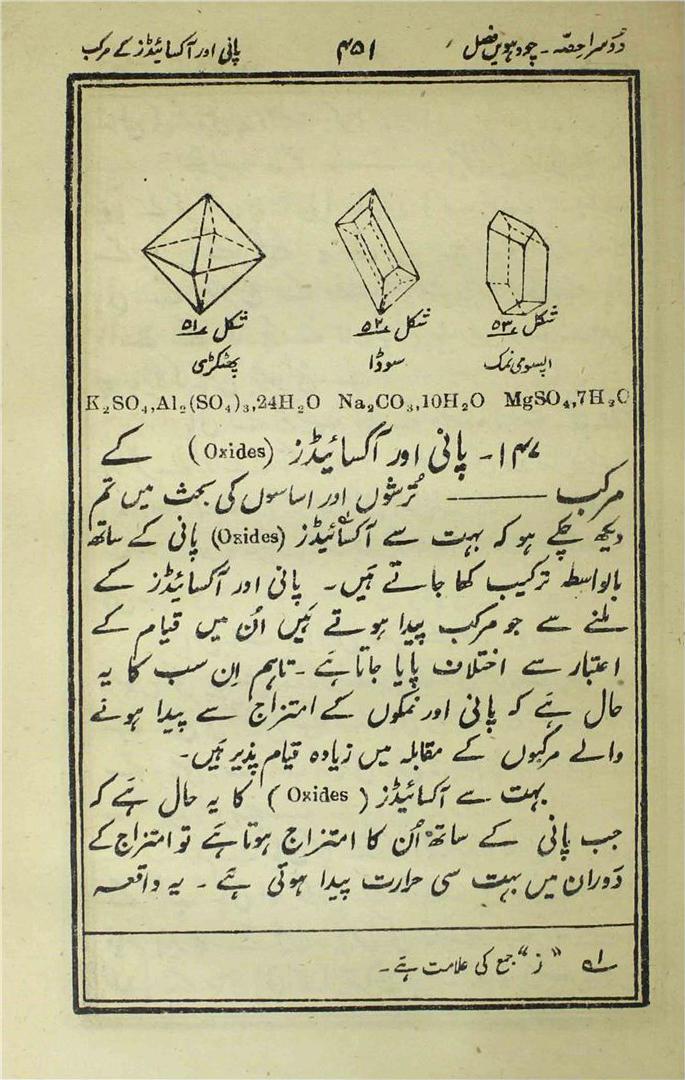 دوسرا حصّہ ۔ چودہویں فصل ۴۵۱ پانی اور آکسائیڈز کے مرکب
شکل ۵۱ شکل ۵۲ شکل ۵۳
پھٹکڑی سوڈا اپسومی نمک
K₂SO₄,Al₂(SO₄)₃,24H₂O Na₂CO₃,10H₂O MgSO₄,7H₂O
۱۴۷۔ پانی اور آکسائیڈز (Oxides) کے
مرکب ——— تُرشوں اور اساسوں کی بحث میں تم
دیکھ چکے ہو کہ بہت سے آکسائیڈز (Oxides) پانی کے ساتھ
بالواسطہ ترکیب کھا جاتے ہَیں۔ پانی اور آکسائیڈز کے
ملنے سے جو مرکب پیدا ہوتے ہَیں اُن میں قیام کے
اعتبار سے اختلاف پایا جاتا ہَے ۔ تاہم اِن سب کا یہ
حال ہَے کہ پانی اور نمکوں کے امتزاج سے پیدا ہونے
والے مرکبوں کے مقابلہ میں زیادہ قیام پذیر ہَیں۔
بہت سے آکسائیڈز (Oxides) کا یہ حال ہَے کہ
جب پانی کے ساتھ اُن کا امتزاج ہوتا ہَے تو امتزاج کے
دَوران میں بہت سی حرارت پیدا ہوتی ہَے ۔ یہ واقعہ
۱؎ ”ز“ جمع کی علامت ہَے ۔